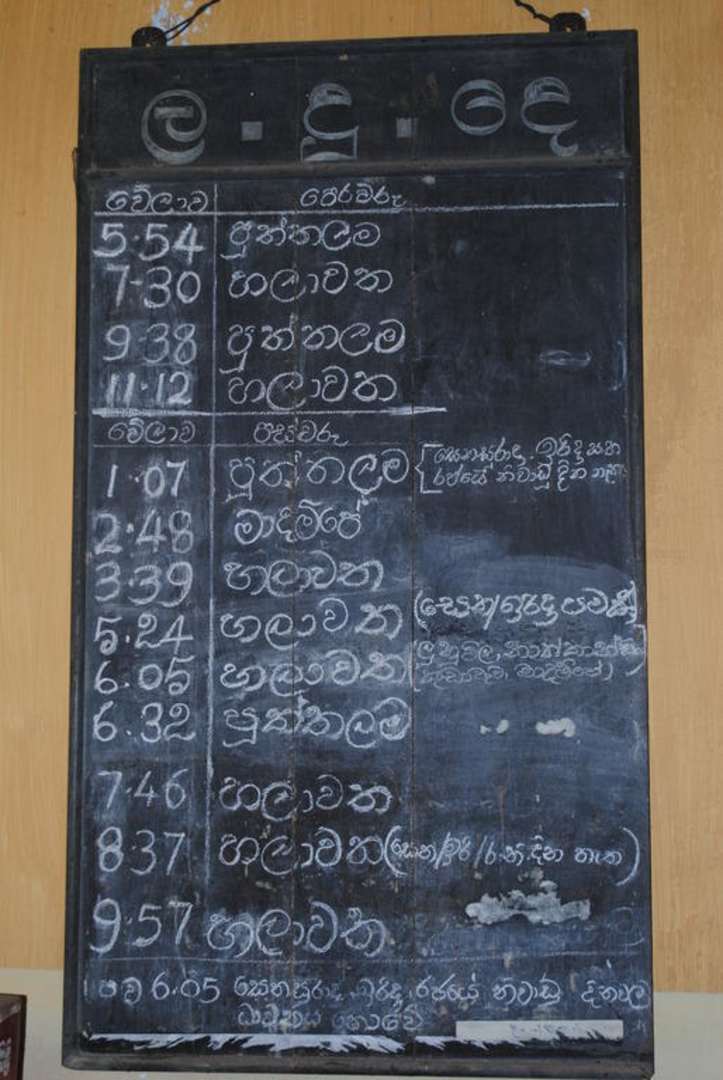 ල . දු . දෙ
වේලාව පෙරවරු
5.54 පුත්තලම
7.30 හලාවත
9.38 පුත්තලම
11.12 හලාවත
වේලාව පස්වරු
1.07 පුත්තලම [සෙනසුරාදා, ඉරිදා සහ
රජයේ නිවාඩු දින නැත
2.48 මාදම්පේ
3.39 හලාවත
5.24 හලාවත (සෙන/ඉරිදා පමණි)
6.05 හලාවත (ලුනුවිල, නාත්තන්ඩිය
කුඩාවැව, මාදම්පේ)
6.32 පුත්තලම
7.46 හලාවත
8.37 හලාවත (සෙන/ඉරි/ර.නි.දින නැත)
9.57 හලාවත
ප.ව 6.05 සෙනසුරාදා, ඉරිදා, රජයේ නිවාඩු දිනවල
ධාවනය නොවේ